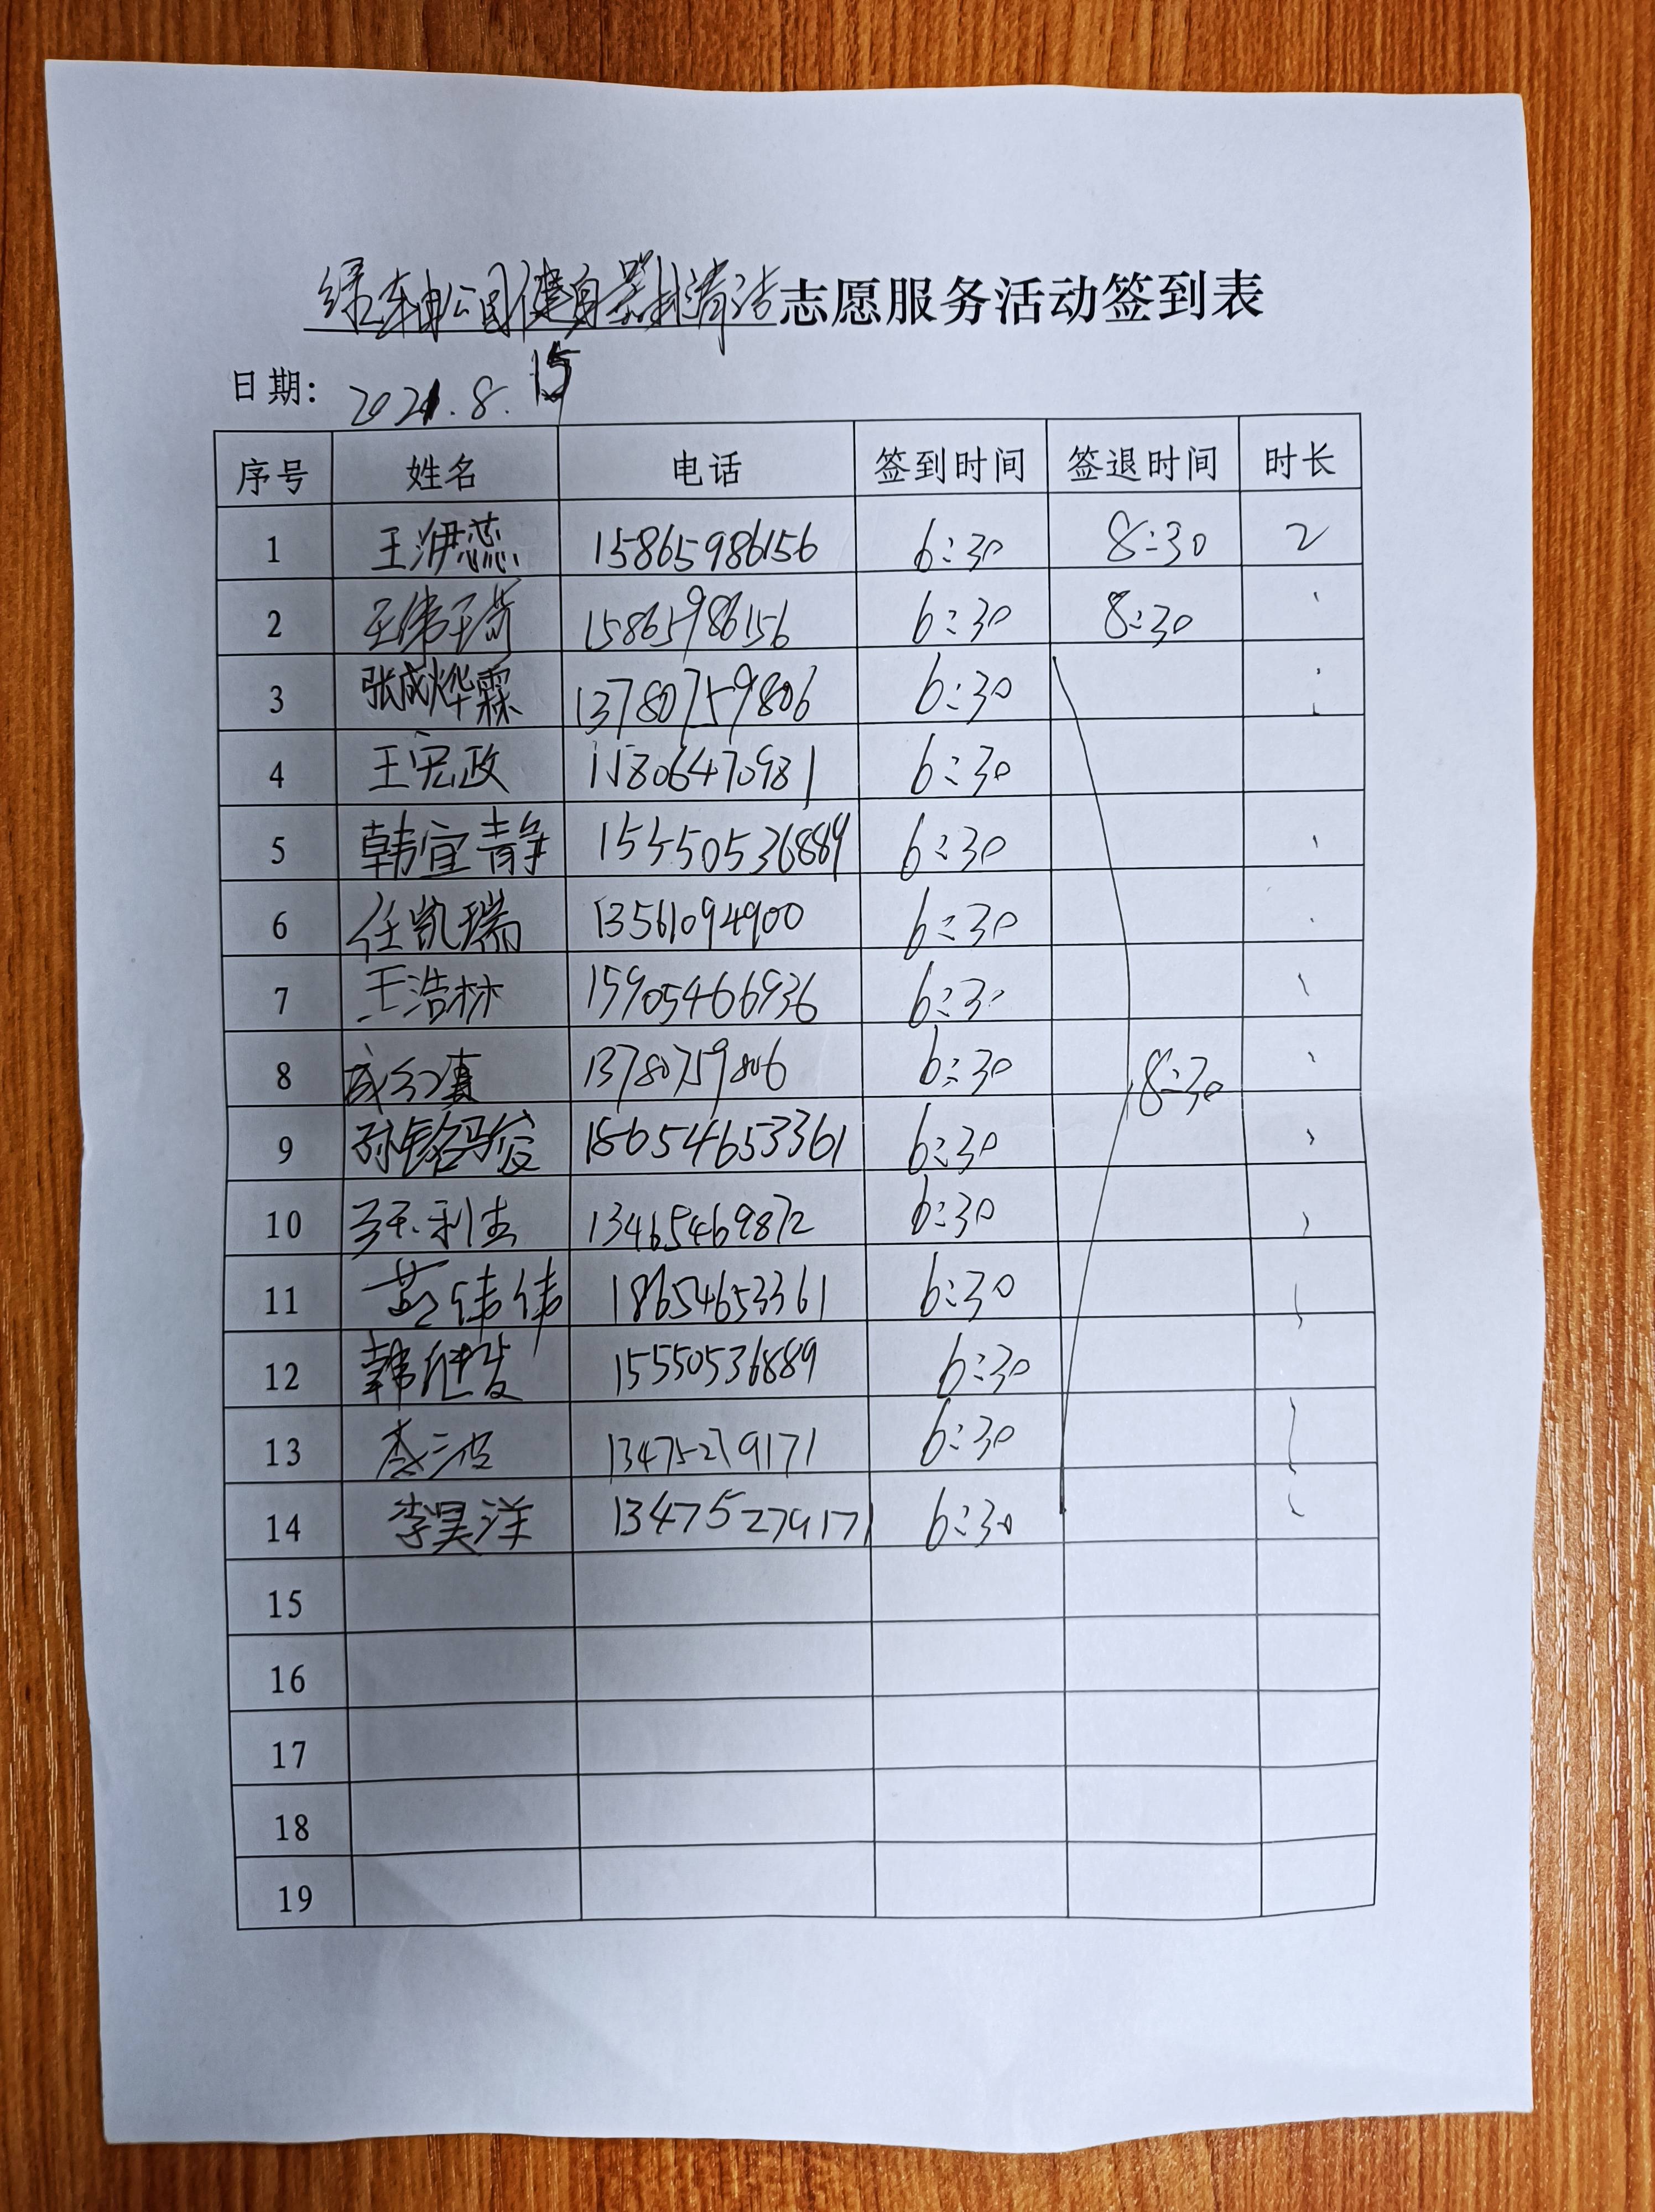 绿轴公园健身器材清洁志愿服务活动签到表
日期: 2021.8.15
序号 姓名 电话 签到时间 签退时间 时长
1 王洢蕊 15865986156 6:30 8:30 2
2 王伟 15865986156 6:30 8:30
3 张成烨霖 13780759806 6:30
4 王宪政 15806470981 6:30
5 韩宜静 15550536889 6:30
6 任凯瑞 13561094900 6:30
7 王浩林 15905466936 6:30
8 13780759806 6:30 8:30
9 18654653361 6:30
10 利 13465469872 6:30
11 伟伟 18654653361 6:30
12 韩继发 15550536889 6:30
13 李三波 13475279171 6:30
14 李昊洋 13475279171 6:30
15
16
17
18
19